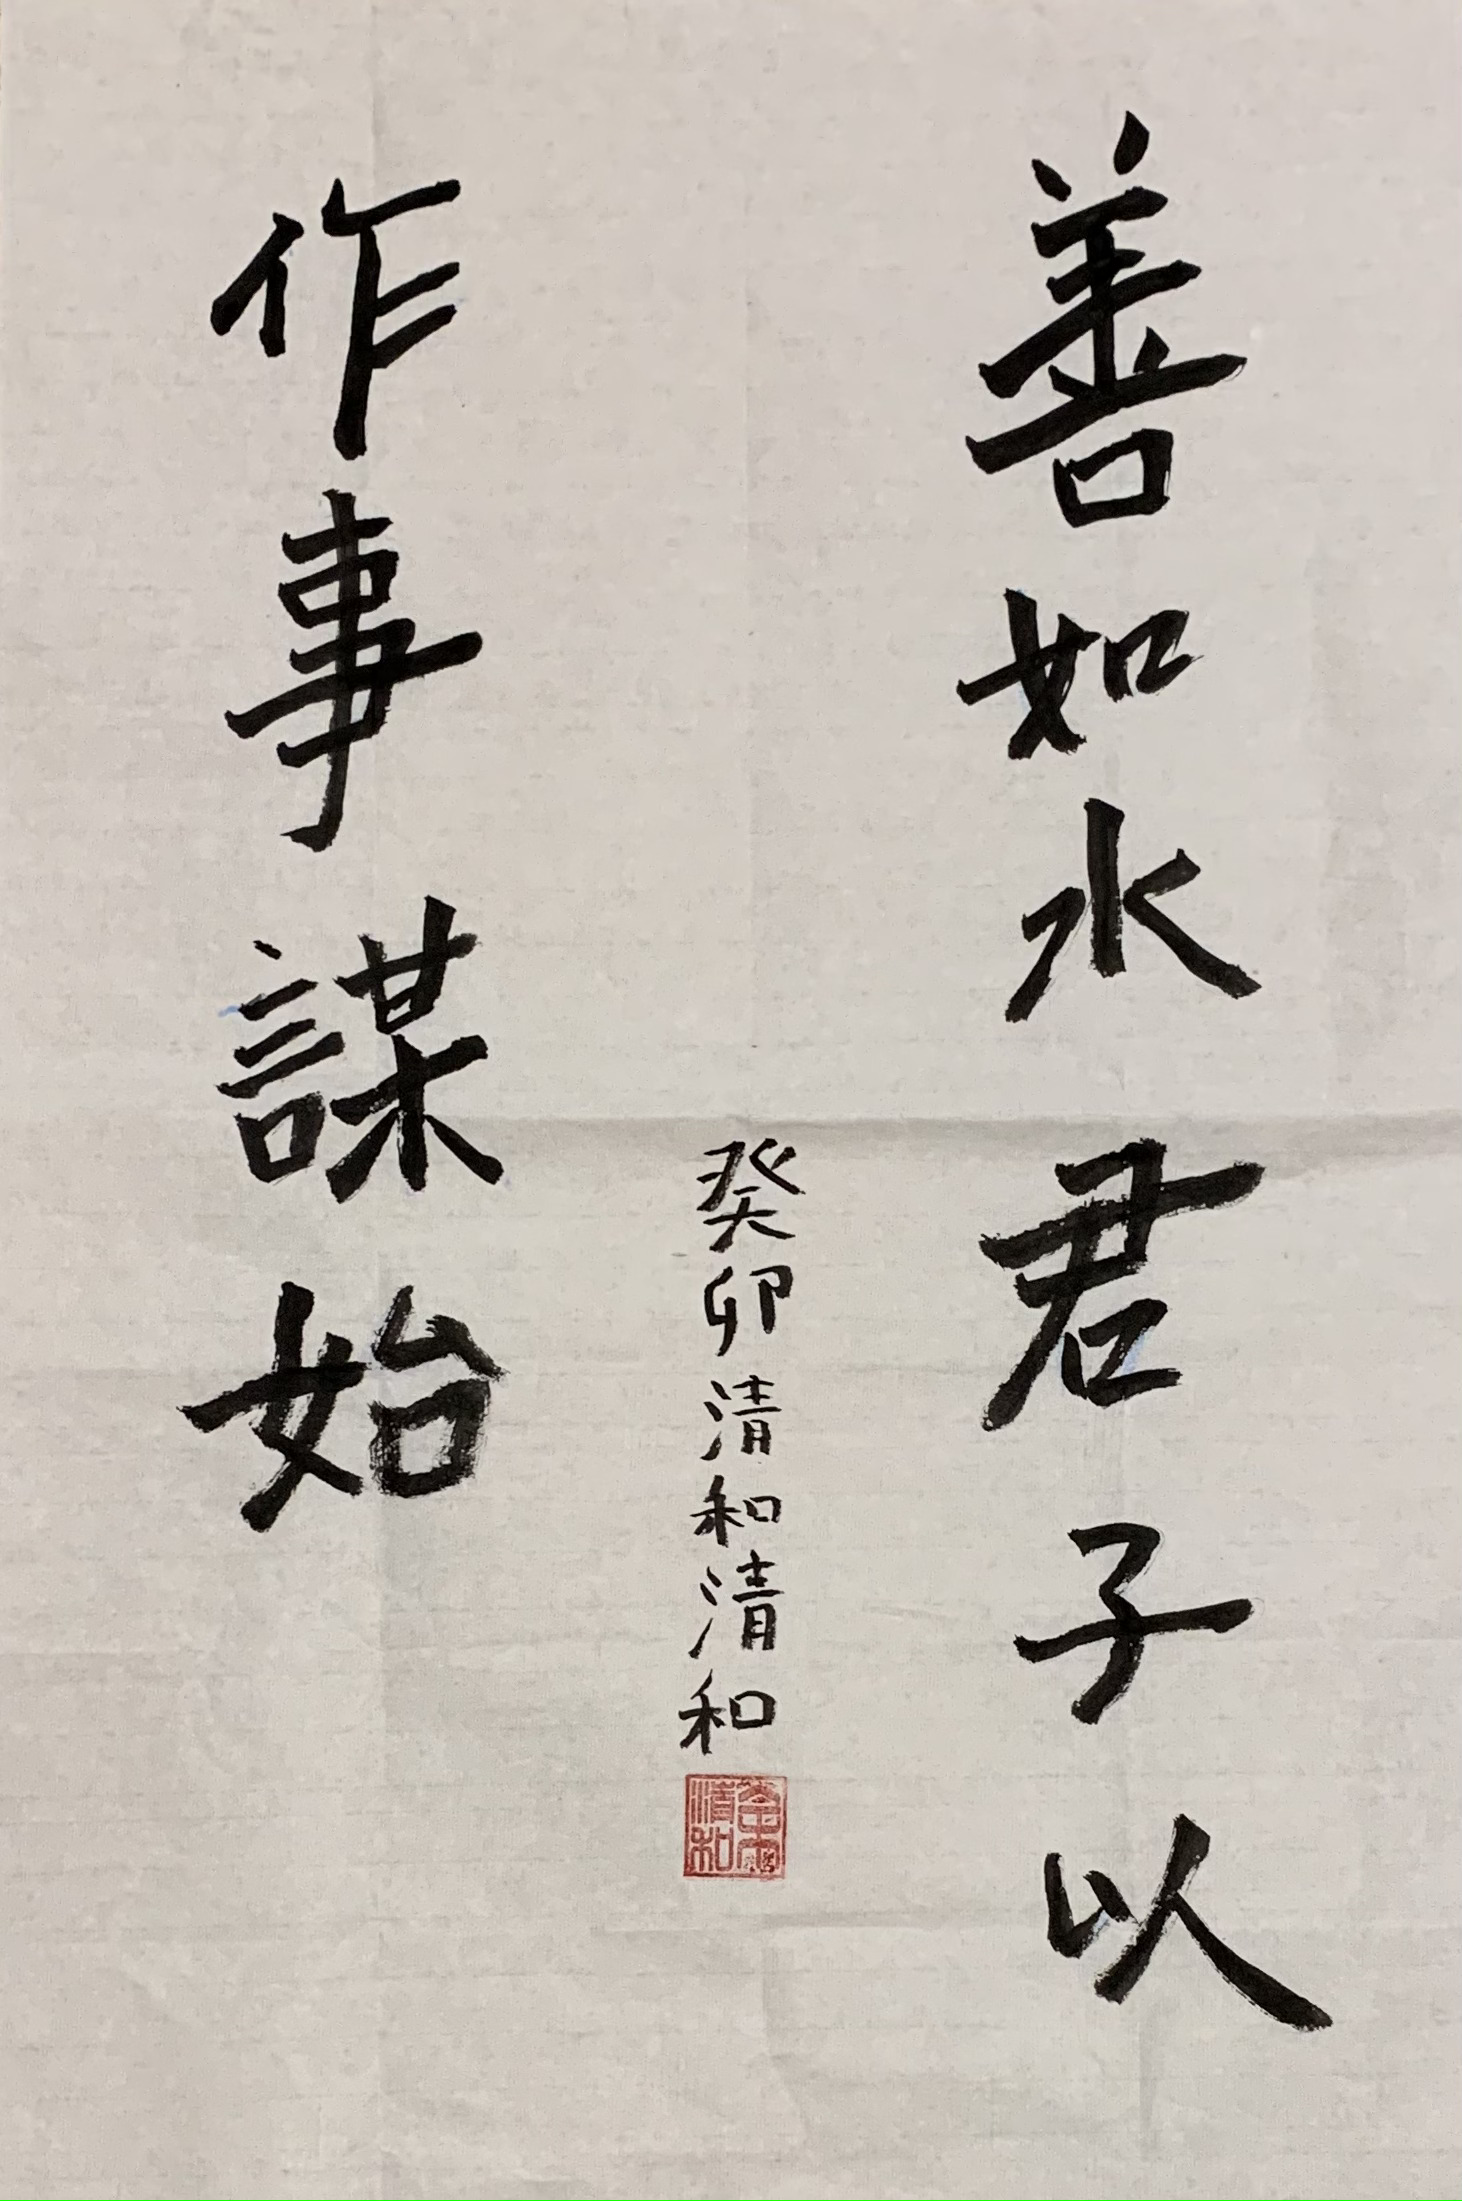 善如水君子以
作事謀始
癸卯清和清和
余中
清和